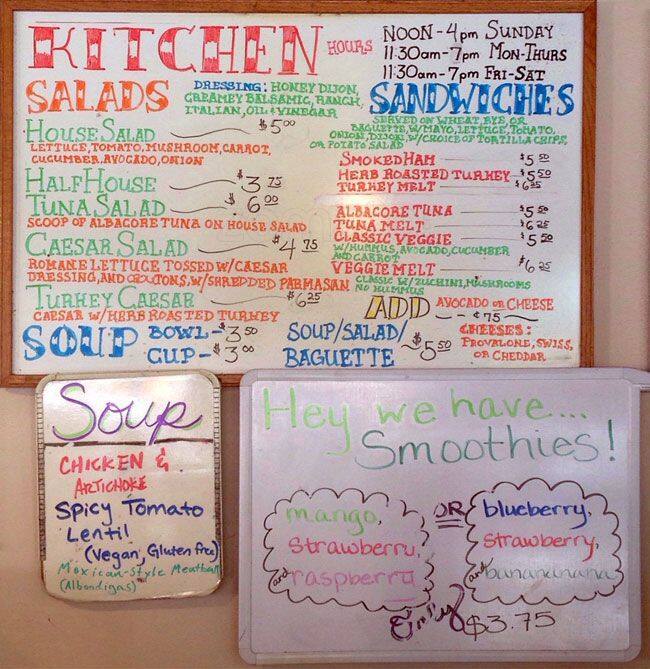 KITCHEN
HOURS
NOON-4pm SUNDAY
11:30am-7pm MON-THURS
11:30am-7pm FRI-SAT
SALADS
DRESSING: HONEY DIJON,
CREAMEY BALSAMIC, RANCH,
ITALIAN, OIL+VINEGAR
HOUSE SALAD $5.00
LETTUCE, TOMATO, MUSHROOM, CARROT,
CUCUMBER, AVOCADO, ONION
HALF HOUSE $3.75
TUNA SALAD $6.00
SCOOP OF ALBACORE TUNA ON HOUSE SALAD
CAESAR SALAD $4.75
ROMANE LETTUCE TOSSED W/CAESAR
DRESSING, AND CROUTONS, W/SHREDDED PARMASAN
TURKEY CAESAR $6.25
CAESAR W/HERB ROASTED TURKEY
SOUP BOWL-$3.50
CUP-$3.00
SANDWICHES
SERVED ON WHEAT, RYE, OR
BAGUETTE, W/MAYO, LETTUCE, TOMATO,
ONION, DIJON, W/CHOICE OF TORTILLA CHIPS,
OR POTATO SALAD
SMOKED HAM $5.50
HERB ROASTED TURKEY $5.50
TURKEY MELT $6.25
ALBACORE TUNA $5.50
TUNA MELT $6.25
CLASSIC VEGGIE $5.50
W/HUMMUS, AVOCADO, CUCUMBER
AND CARROT
VEGGIE MELT $6.25
CLASSIC W/ZUCHINI, MUSHROOMS
NO HUMMUS
ADD AVOCADO OR CHEESE
¢75
CHEESES:
PROVALONE, SWISS,
OR CHEDDAR
SOUP/SALAD/
BAGUETTE $5.50
Soup
CHICKEN &
ARTICHOKE
Spicy Tomato
Lentil
(Vegan, Gluten free)
Mexican-Style Meatball
(Albondigas)
Hey we have....
Smoothies!
mango,
strawberry,
and raspberry
OR
blueberry,
strawberry,
and banananana
Only $3.75